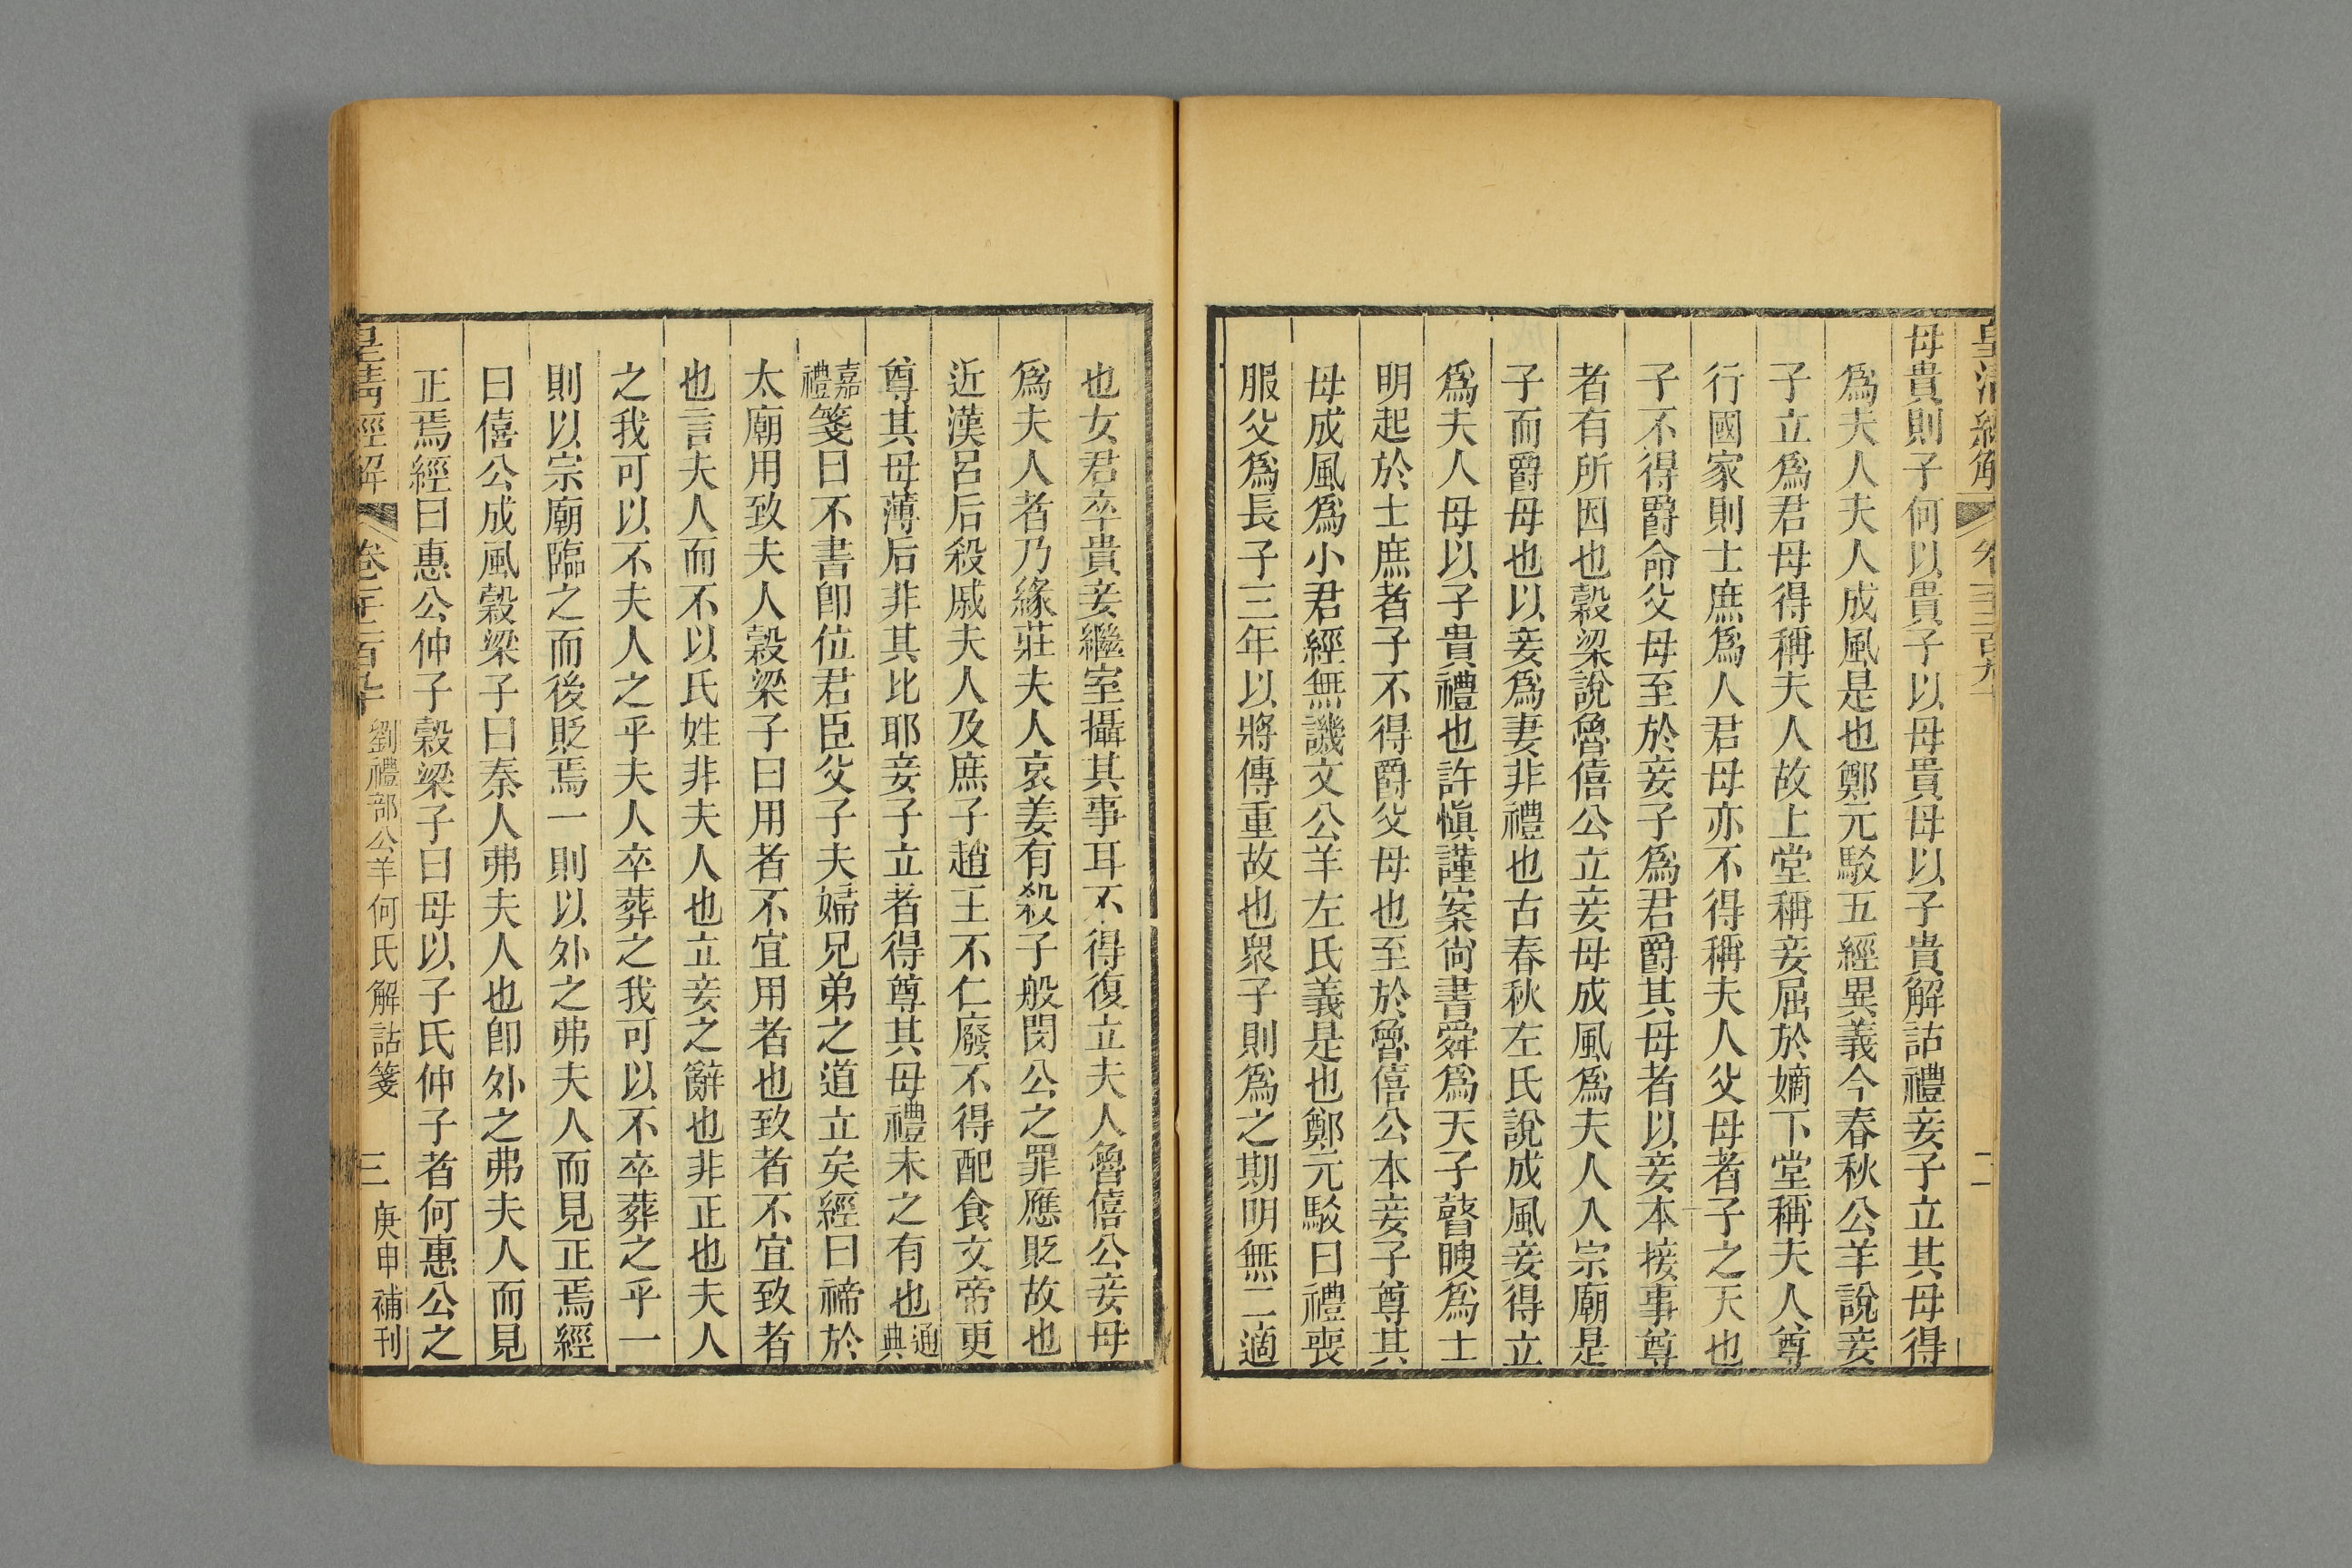 母貴則子何以貴子以母貴母以子貴解詁禮妾子立其母得
爲夫人夫人成風是也鄭元駁五經異義今春秋公羊說妾
子立爲君母得稱夫人故上堂稱妾屈於嫡下堂稱夫人尊
行國家則士庶爲人君母亦不得稱夫人父母者子之天也
子不得爵命父母至於妾子爲君爵其母者以妾本接事尊
者有所因也穀梁說魯僖公立妾母成風爲夫人入宗廟是
子而爵母也以妾爲妻非禮也古春秋左氏說成風妾得立
爲夫人母以子貴禮也許愼謹案尙書舜爲天子瞽瞍爲士
明起於士庶者子不得爵父母也至於魯僖公本妾子尊其
母成風爲小君經無譏文公羊左氏義是也鄭元駁曰禮喪
服父爲長子三年以將傳重故也衆子則爲之期明無二適
也女君卒貴妾繼室攝其事耳不得復立夫人魯僖公妾母
爲夫人者乃緣莊夫人哀姜有殺子般閔公之罪應貶故也
近漢呂后殺戚夫人及庶子趙王不仁廢不得配食文帝更
尊其母薄后非其比耶妾子立者得尊其母禮未之有也通典
嘉禮箋曰不書卽位君臣父子夫婦兄弟之道立矣經曰禘於
太廟用致夫人穀梁子曰用者不宜用者也致者不宜致者
也言夫人而不以氏姓非夫人也立妾之辭也非正也夫人
之我可以不夫人之乎夫人卒葬之我可以不卒葬之乎一
則以宗廟臨之而後貶焉一則以外之弗夫人而見正焉經
曰僖公成風穀梁子曰秦人弗夫人也卽外之弗夫人而見
正焉經曰惠公仲子穀梁子曰母以子氏仲子者何惠公之
皇清經解 卷 劉禮部公羊何氏解詁箋 三 庚申補刊